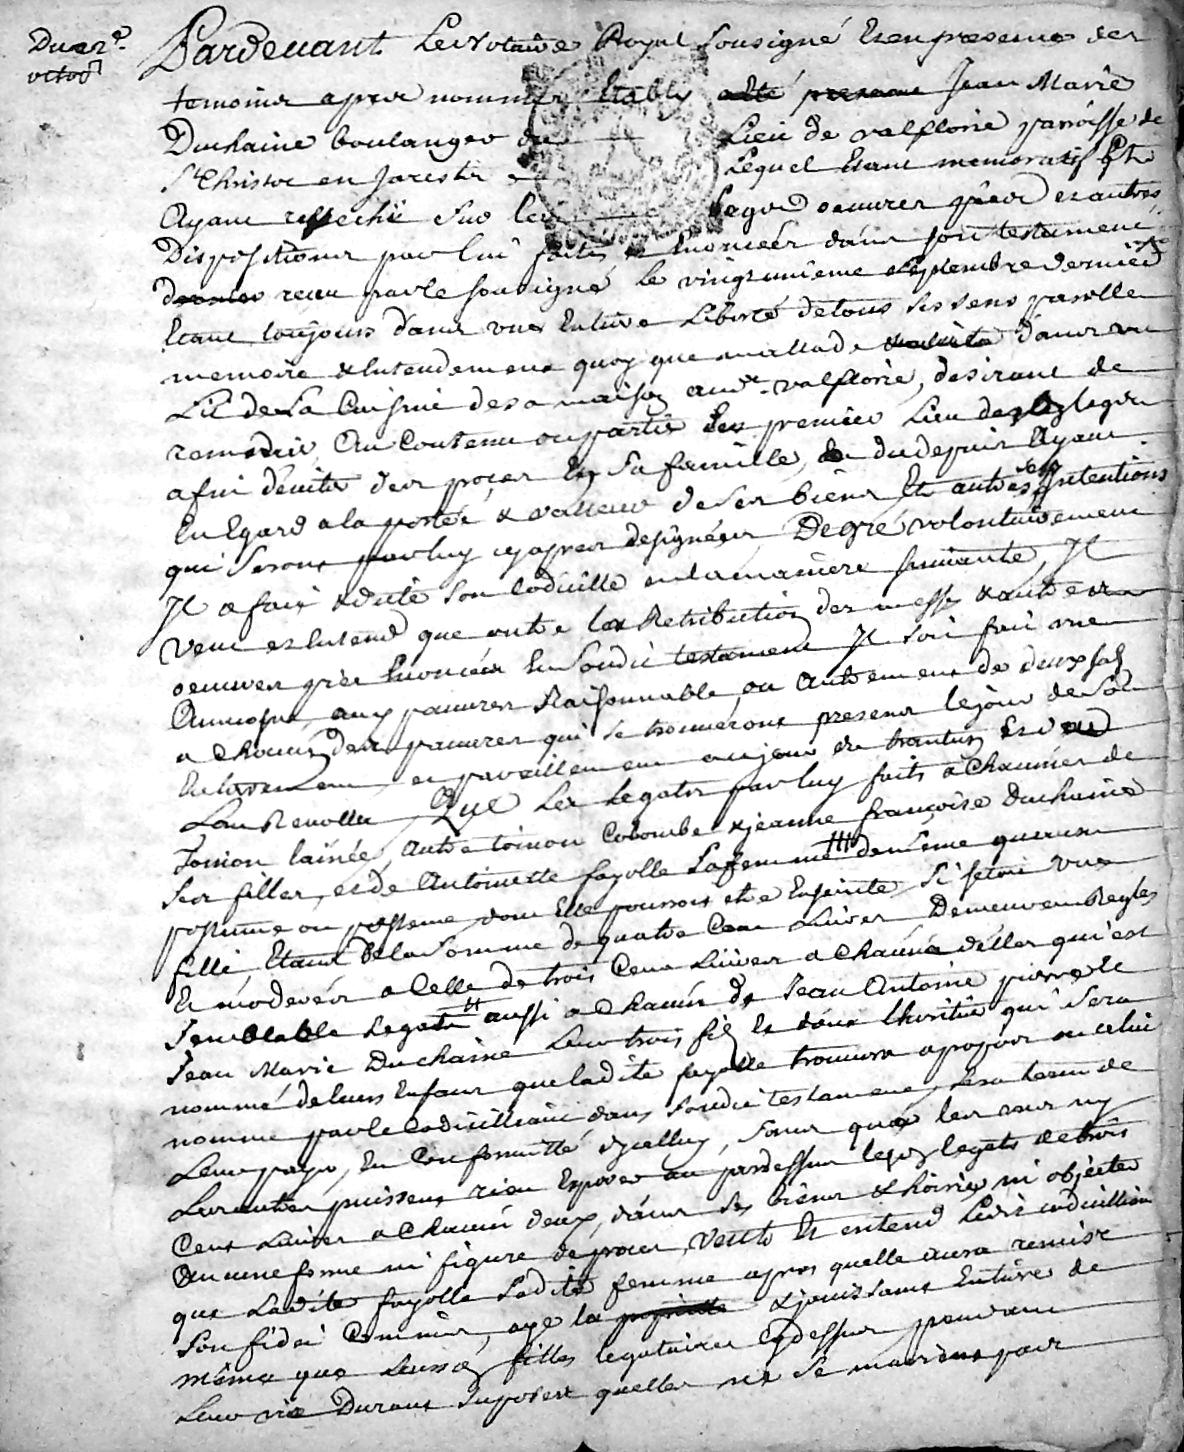 Du 22e.
octob
Pardevant Le Notaire Royal sousigné Et en presence des
temoins apres nommés Etably Jean Marie
Duchaine boulanger du Lieu de valflorie parroisse de
St Christo en Jarestz Lequel Etant memoratif Et
Ayant reflechi sur les legs oeuvres pies et autres
Dispositions par lui faites et Enoncées dans son testament
receu par le sousigné le vingt unieme septembre dernier
Etant toujours dans une Entiere Liberté de tous ses sens parolle
memoire & Entendement quoy que mallade dans un
Lit de La Cuisine de sa maison audt. valflorie, desirant de
remedier Au Contenu en partie premier Lieu desd legs
afin d'eviter des proces En sa famille, du depuis Ayant
Eu Egard a la portée & valleur de ses biens Et autres ses Intentions
qui seront par luy cy apres designées, De gré volontairement
Il a fait & dicté son Codicille en la maniere suivante, Il
veut et Entend que outre la Retribution des messes & autres
oeuvres pies Enoncées En sondit testament Il soit fait une
Aumosne aux pauvres Raisonnable, ou Autrement de deux sols
a Chacun des pauvres qui se trouveront presens le jour de son
Enterrement et pareillement au jour de trantin Et d
L'an Revollu, Que Les legats par luy faits a Chacunes de
Toinon lainée, autre toinon Colombe & jeanne françoise Duchaine
ses filles, et de Antoinette fayolle sa femme de meme
postume ou posteme dont Elle pourroit etre Enseinte, si setoit une
fille, Etant de la somme de quatre Cent Livres Demeurent Reglés
Et moderés a Celle de trois Cent Livres a Chacune d'elles qui est
semblable Legat aussi a Chacun de Jean Antoine pierre Et
Jean Marie Duchaine Leur trois fils Et dont l'heritier qui sera
nommé de leurs Enfans que ladite fayolle trouvera apropos ou celui
nommé par le Codicilliant dans sondit testament, sera tenu de
Leur payer, En Conformitté dicelluy, sans que les uns ny
Les autres puissent rien Exposer au pardessus lesd legats de trois
Cent Livres a Chacun deux, dans ses biens & hoirie, ni objecter
Aucune forme ni figure de proces, veult Et entend Ledit codicilliant
que Ladite fayolle sadite femme apres quelle aura remise
son fidei Commis, aye la & jouissance Entiere de
même que leursd filles legataires Cy dessus pendant
Leur vie Durant suposer quelles ne se marient pour